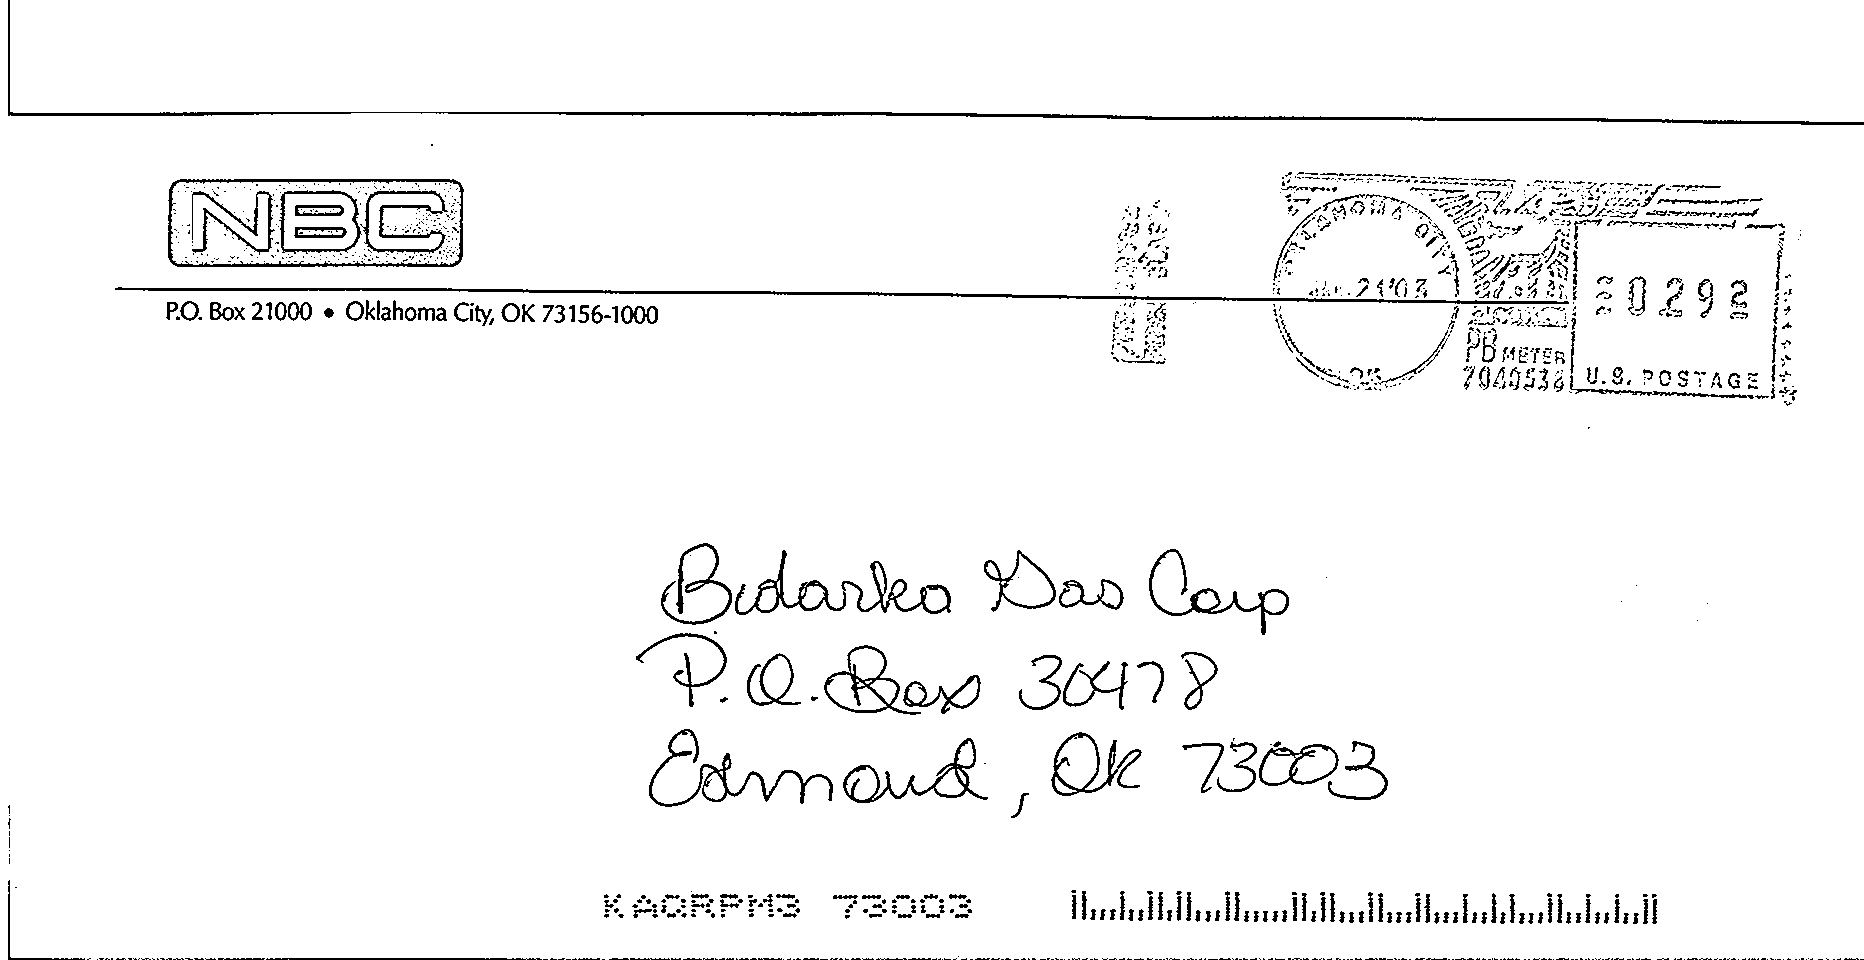 NBC
P.O. Box 21000 • Oklahoma City, OK 73156-1000
OKLAHOMA CITY
21'03
OK
PB METER
7040536
0292
U.S. POSTAGE
Bidarka Gas Corp
P.O. Box 30478
Edmond, Ok 73003
KAQRPM3 73003